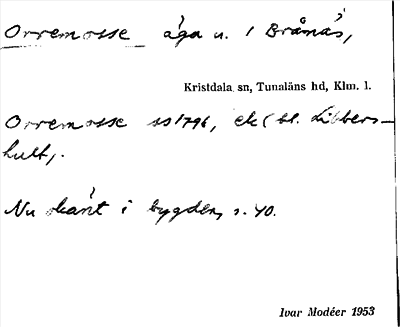 Orremosse äga u. 1 Bråmås,
Kristdala sn, Tunaläns hd, Klm. l.
Orremosse ss 1796, ek ( bl. Libbers-
hult,.
Nu känt i bygden, s. 40.
Ivar Modéer 1953